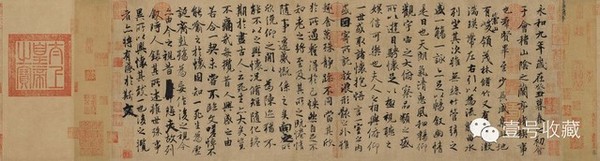 永和九年歲在癸丑暮春之初會
于會稽山陰之蘭亭脩稧事
也群賢畢至少長咸集此地
有崇山峻領茂林脩竹又有清流激
湍暎帶左右引以為流觴曲水
列坐其次雖無絲竹管弦之
盛一觴一詠亦足以暢敘幽情
是日也天朗氣清惠風和暢仰
觀宇宙之大俯察品類之盛
所以遊目騁懷足以極視聽之
娛信可樂也夫人之相與俯仰
一世或取諸懷抱悟言一室之內
或因寄所託放浪形骸之外雖
趣舍萬殊靜躁不同當其欣
於所遇蹔得於己怏然自足不
知老之將至及其所之既惓情
隨事遷感慨係之矣向之所
欣俛仰之閒以為陳跡猶不
能不以之興懷況脩短隨化終
期於盡古人云死生亦大矣豈
不痛哉每攬昔人興感之由
若合一契未嘗不臨文嗟悼不
能喻之於懷固知一死生為虛
誕齊彭殤為妄作後之視今
亦由今之視昔悲夫故列
敘時人錄其所述雖世殊事
異所以興懷其致一也後之攬
者亦將有感於斯文
太上皇帝之寶
壹号收藏